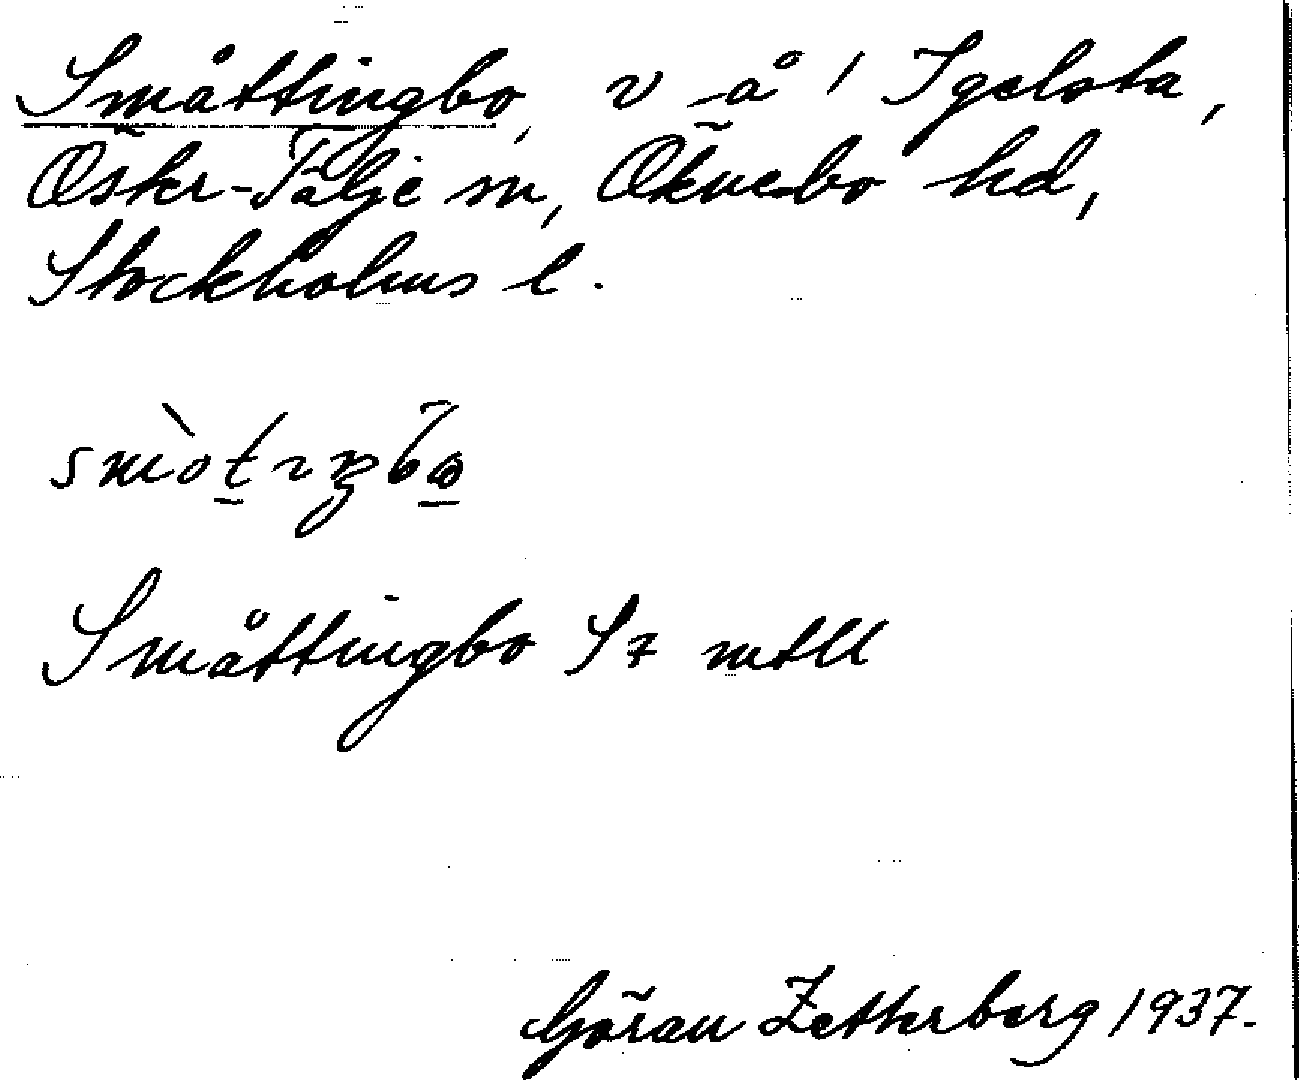 Småttingbo, v å i Igelsta,
Öster-Tälje sn, Öknebo hd,
Stockholms l.
Småttingbo Sz mtll
Göran Zetterberg 1937.